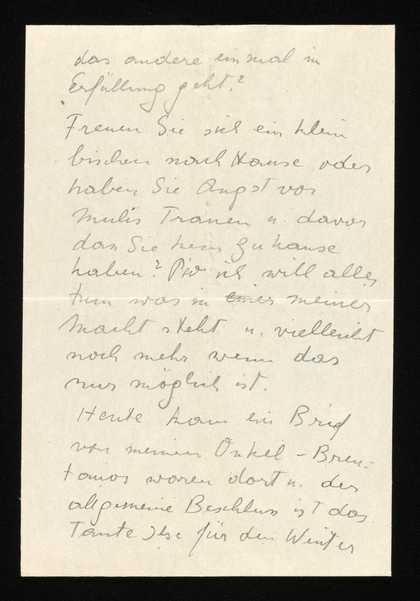 das andere einmal in
Erfüllung geht?
Freuen Sie sich ein klein
bischen nach Hause oder
haben Sie Angst vor
Mulis Tränen u. davor
das Sie kein Zuhause
haben? ich will alles
tun was in meiner
Macht steht u. vielleicht
noch mehr wenn das
nur möglich ist.
Heute kam ein Brief
von meinem Onkel - Bren-
tanos waren dort u. der
allgemeine Beschluss ist das
Tante Ilse für den Winter